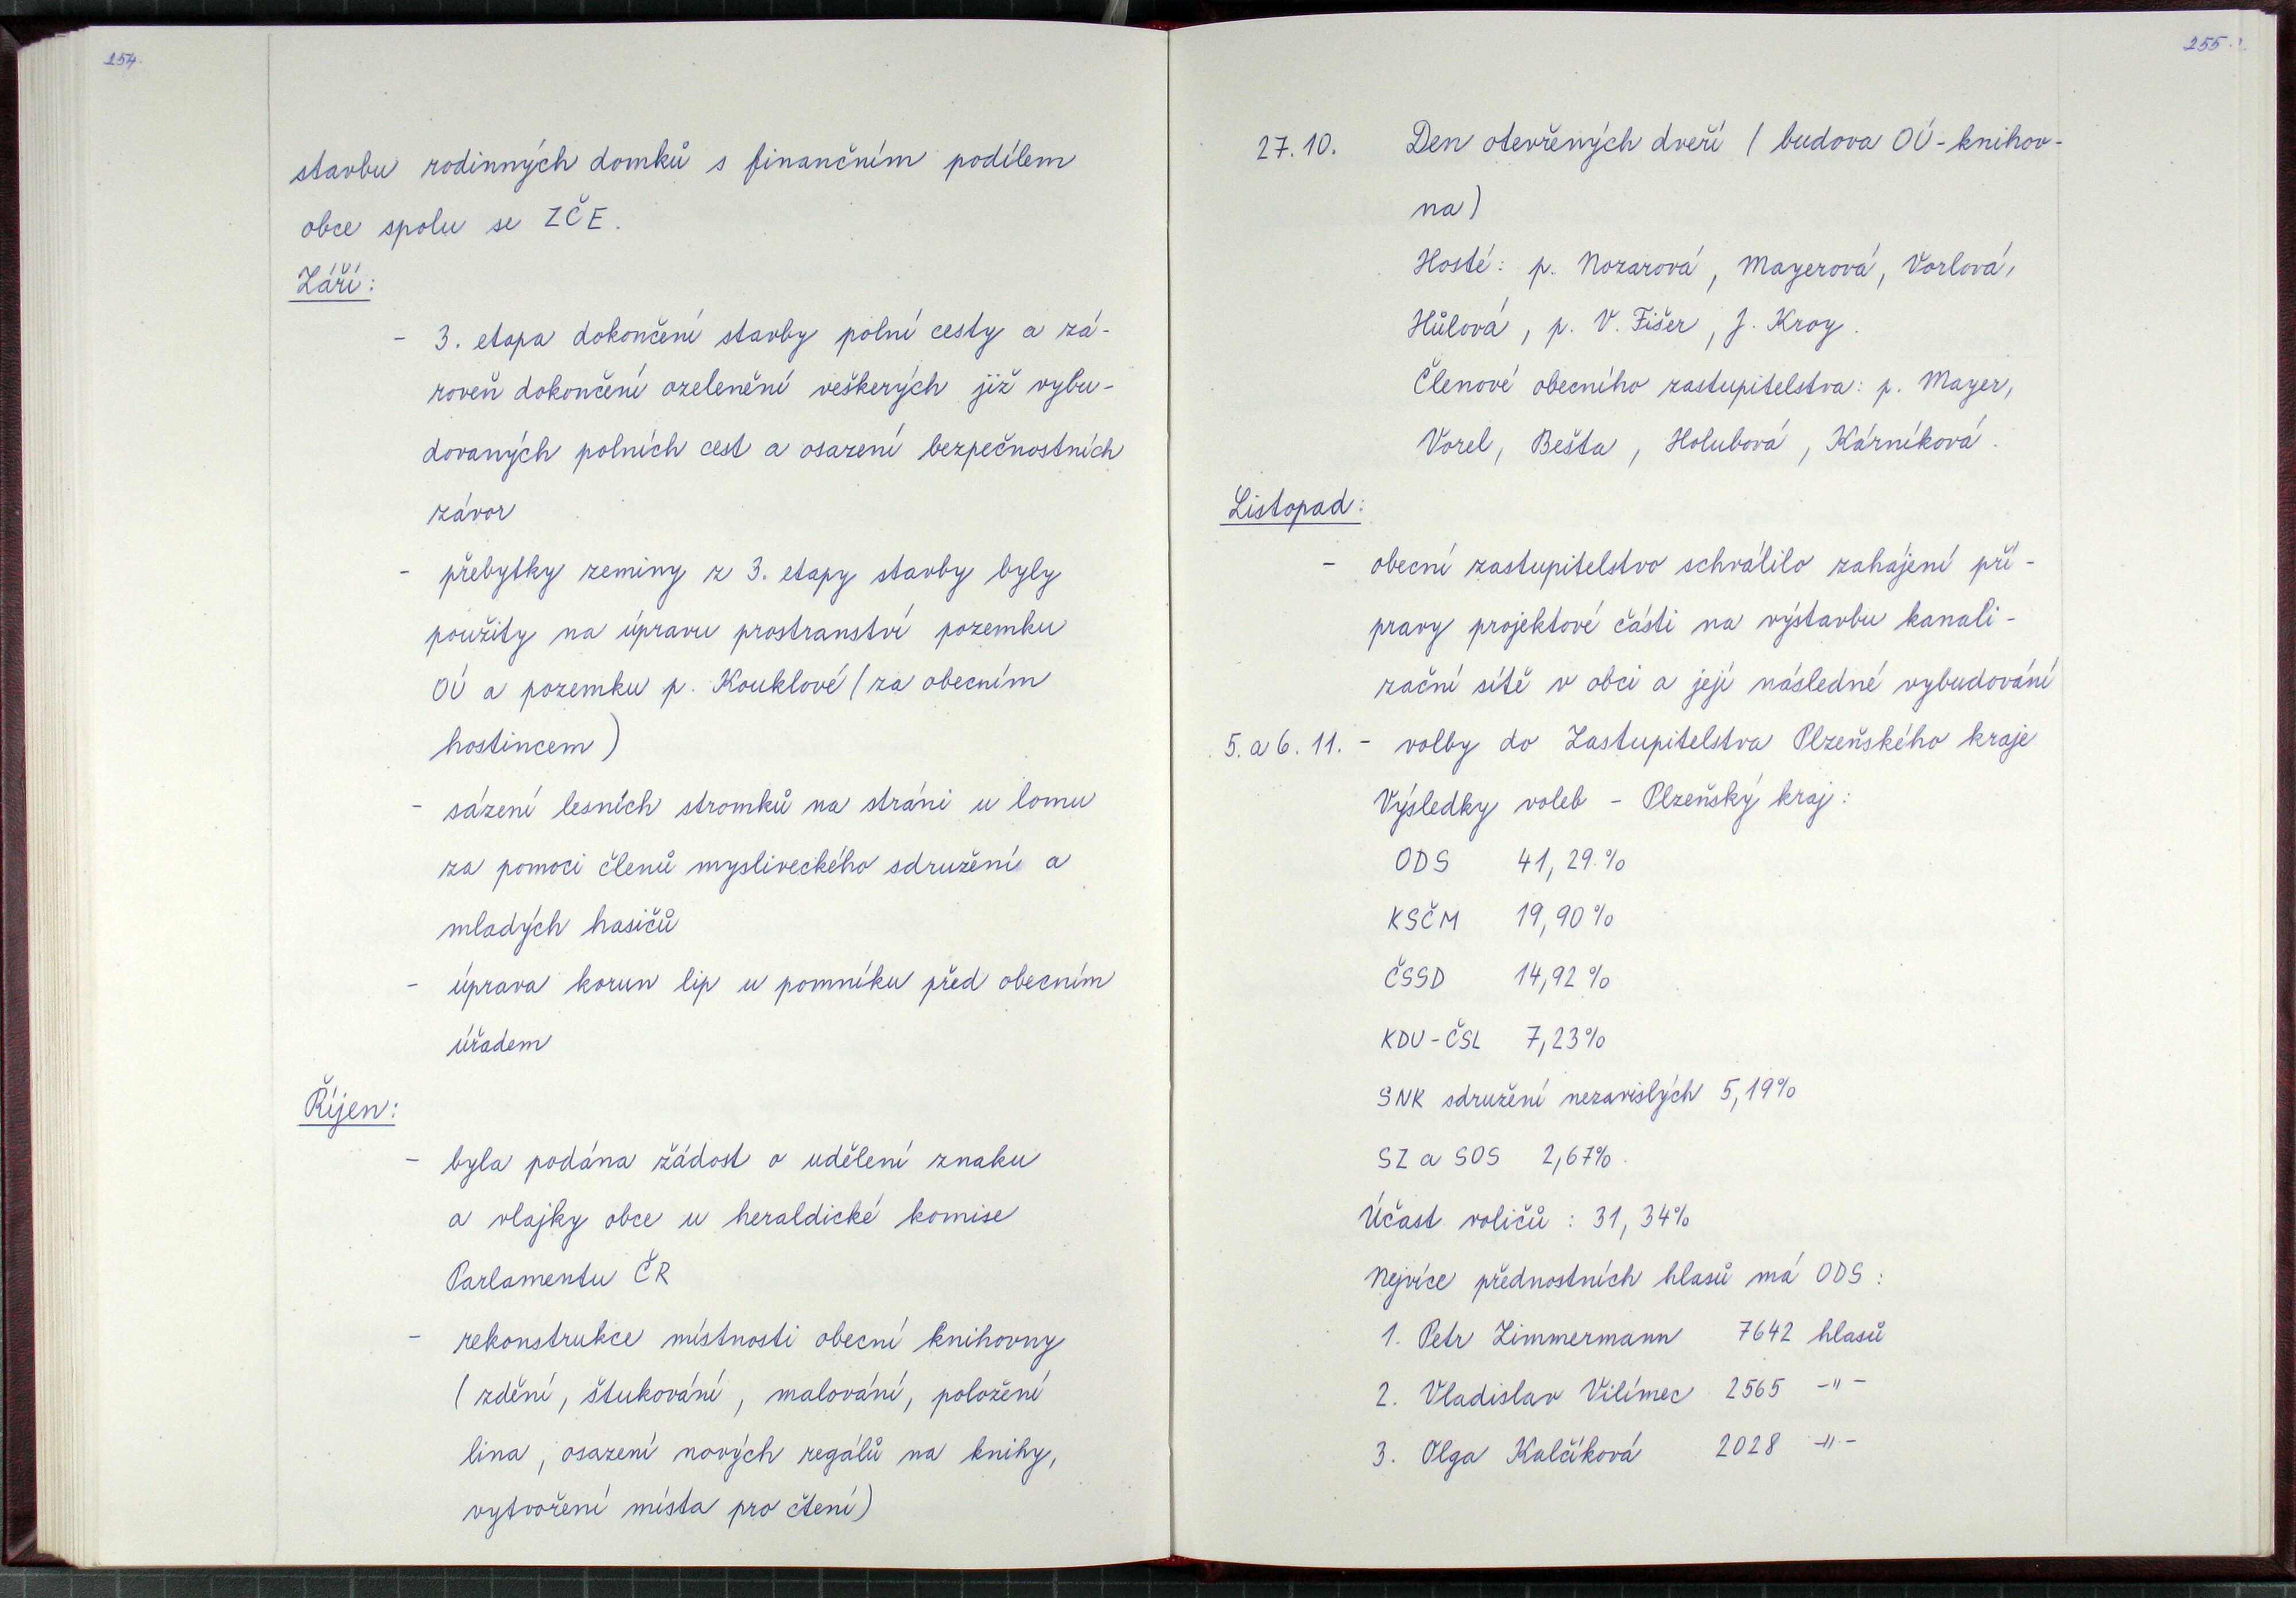 254.
stavbu rodinných domků s finančním podílem
obce spolu se ZČE.
Září:
- 3. etapa dokončení stavby polní cesty a zá-
roveň dokončení ozelenění veškerých již vybu-
dovaných polních cest a osazení bezpečnostních
závor
- přebytky zeminy z 3. etapy stavby byly
použity na úpravu prostranství pozemku
OÚ a pozemku p. Kouklové (za obecním
hostincem)
- sázení lesních stromků na stráni u lomu
za pomoci členů mysliveckého sdružení a
mladých hasičů
- úprava korun lip u pomníku před obecním
úřadem
Říjen:
- byla podána žádost o udělení znaku
a vlajky obce u heraldické komise
Parlamentu ČR
- rekonstrukce místnosti obecní knihovny
(zdění, štukování, malování, položení
lina, osazení nových regálů na knihy,
vytvoření místa pro čtení)
255.
27.10. Den otevřených dveří (budova OÚ-knihov-
na)
Hosté: p. Nozarová, Mayerová, Vorlová,
Hůlová, p. V. Fišer, J. Kroy.
Členové obecního zastupitelstva: p. Mayer,
Vorel, Bešta, Holubová, Kárníková.
Listopad:
- obecní zastupitelstvo schválilo zahájení pří-
pravy projektové části na výstavbu kanali-
zační sítě v obci a její následné vybudování
5. a 6. 11. - volby do Zastupitelstva Plzeňského kraje
Výsledky voleb - Plzeňský kraj:
ODS 41,29 %
KSČM 19,90 %
ČSSD 14,92 %
KDU-ČSL 7,23%
SNK sdružení nezavislých 5,19%
SZ a SOS 2,67%
Účast voličů : 31,34%
Nejvíce přednostních hlasů má ODS :
1. Petr Zimmermann 7642 hlasů
2. Vladislav Vilímec 2565 -"-
3. Olga Kalčíková 2028 -"-